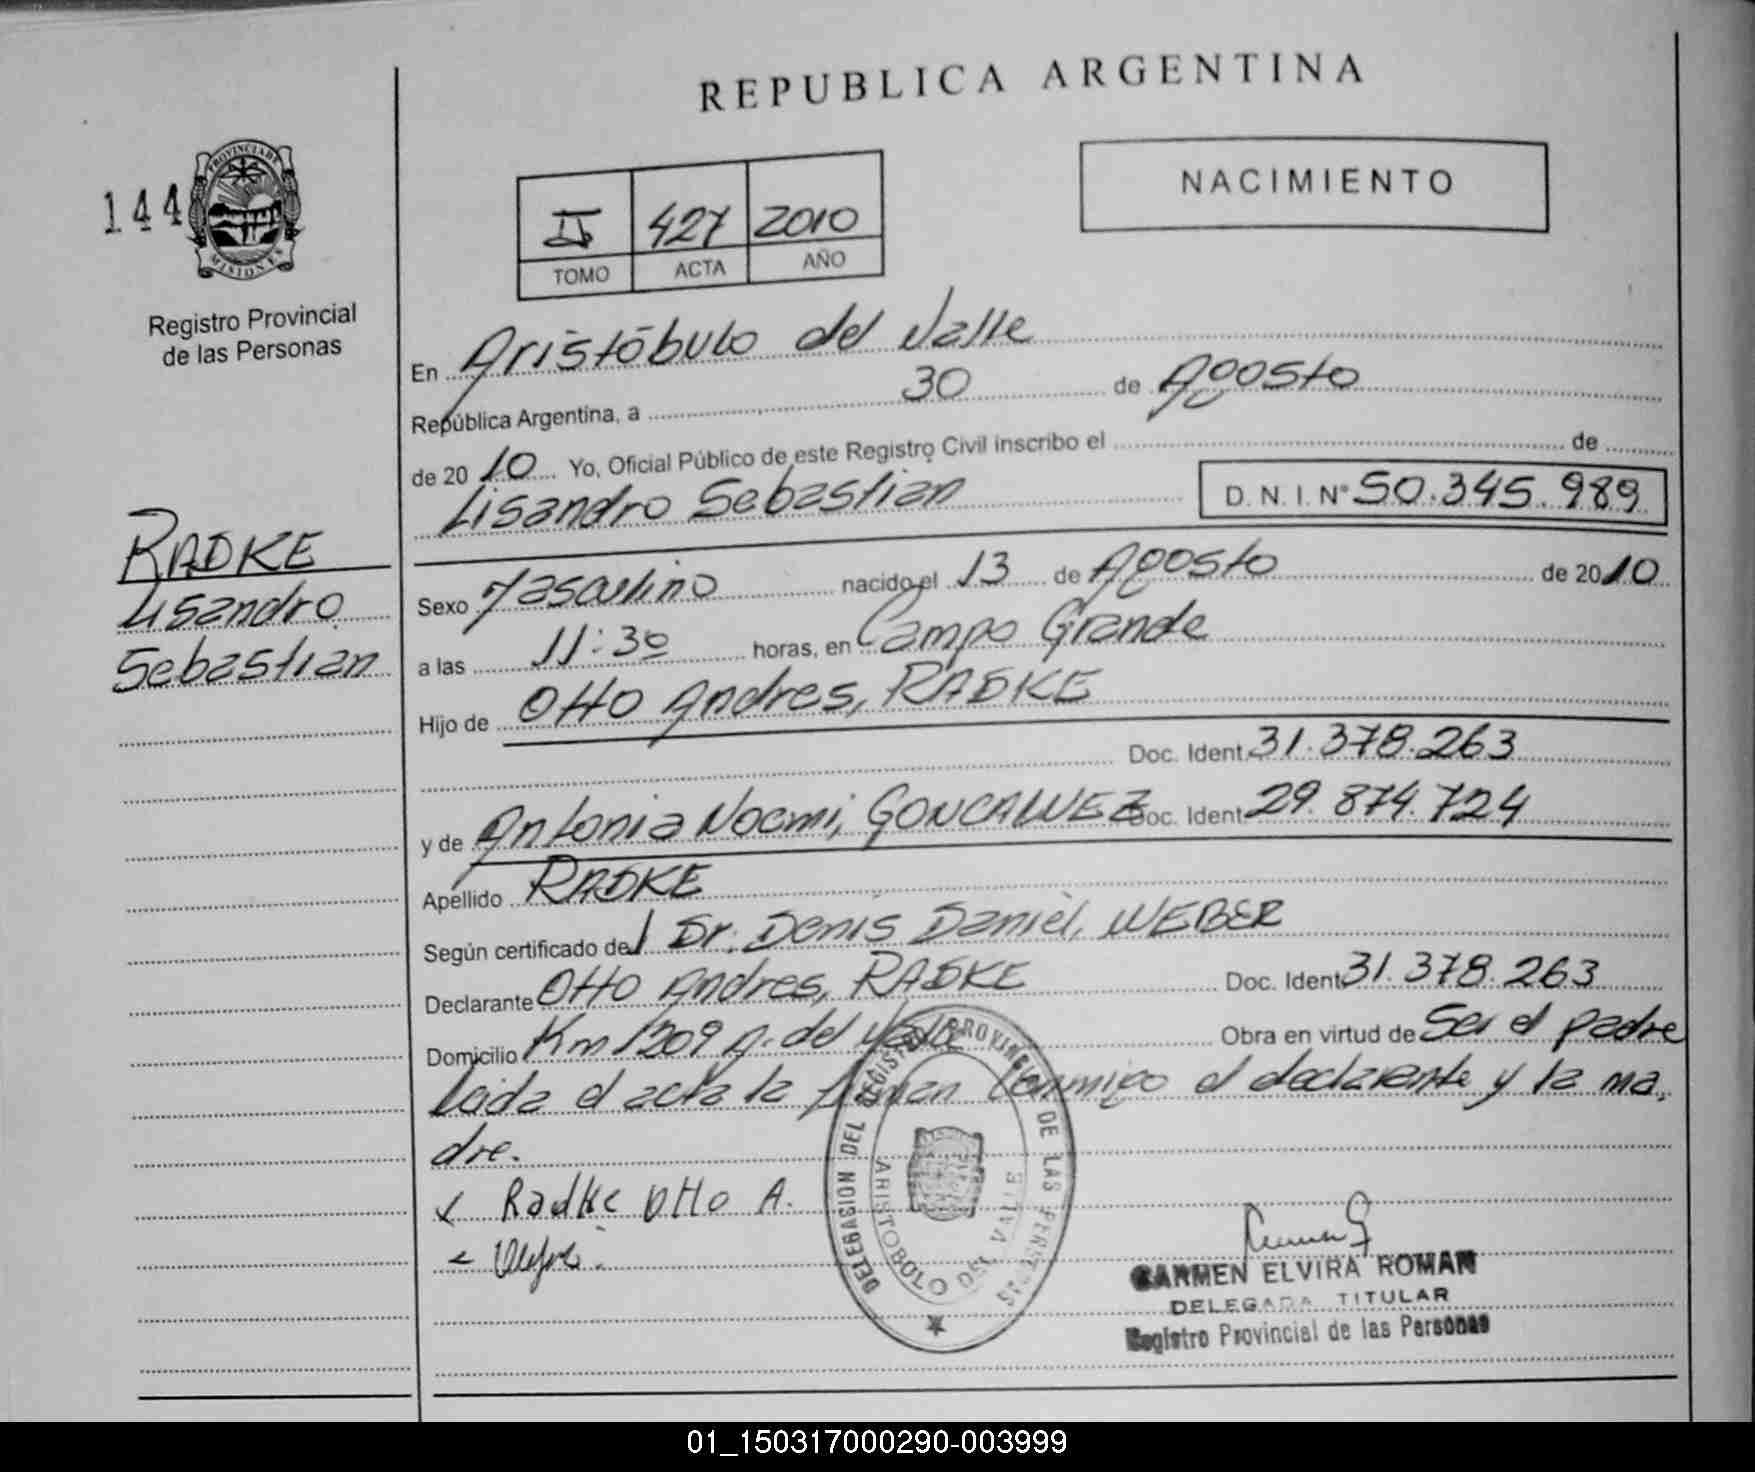 REPUBLICA ARGENTINA
144
PROVINCIA DE
MISIONES
Registro Provincial
de las Personas
II 427 2010
TOMO ACTA AÑO
NACIMIENTO
RADKE
Lisandro
Sebastian
En Aristóbulo del Valle
República Argentina, a 30 de Agosto
de 2010 Yo, Oficial Público de este Registro Civil inscribo el de
Lisandro Sebastian D.N.I. Nº 50.345.989
Sexo Masculino nacido el 13 de Agosto de 2010
a las 11:30 horas, en Campo Grande
Hijo de Otto Andres, RADKE
Doc. Ident. 31.378.263
y de Antonia Noemi, GONCALVEZ Doc. Ident. 29.874.724
Apellido RADKE
Según certificado del Dr. Denis Daniel, WEBER
Declarante Otto Andres, RADKE Doc. Ident. 31.378.263
Domicilio Km 1209 A. del Valle Obra en virtud de Ser el padre
Leida el acta la firman conmigo el declarante y la ma-
dre.
Radke Otto A.
DELEGASION DEL REGISTRO PROVINCIAL DE LAS PERSONAS
ARISTOBOLO DEL VALLE
CARMEN ELVIRA ROMAN
DELEGADA TITULAR
Registro Provincial de las Personas
01_150317000290-003999